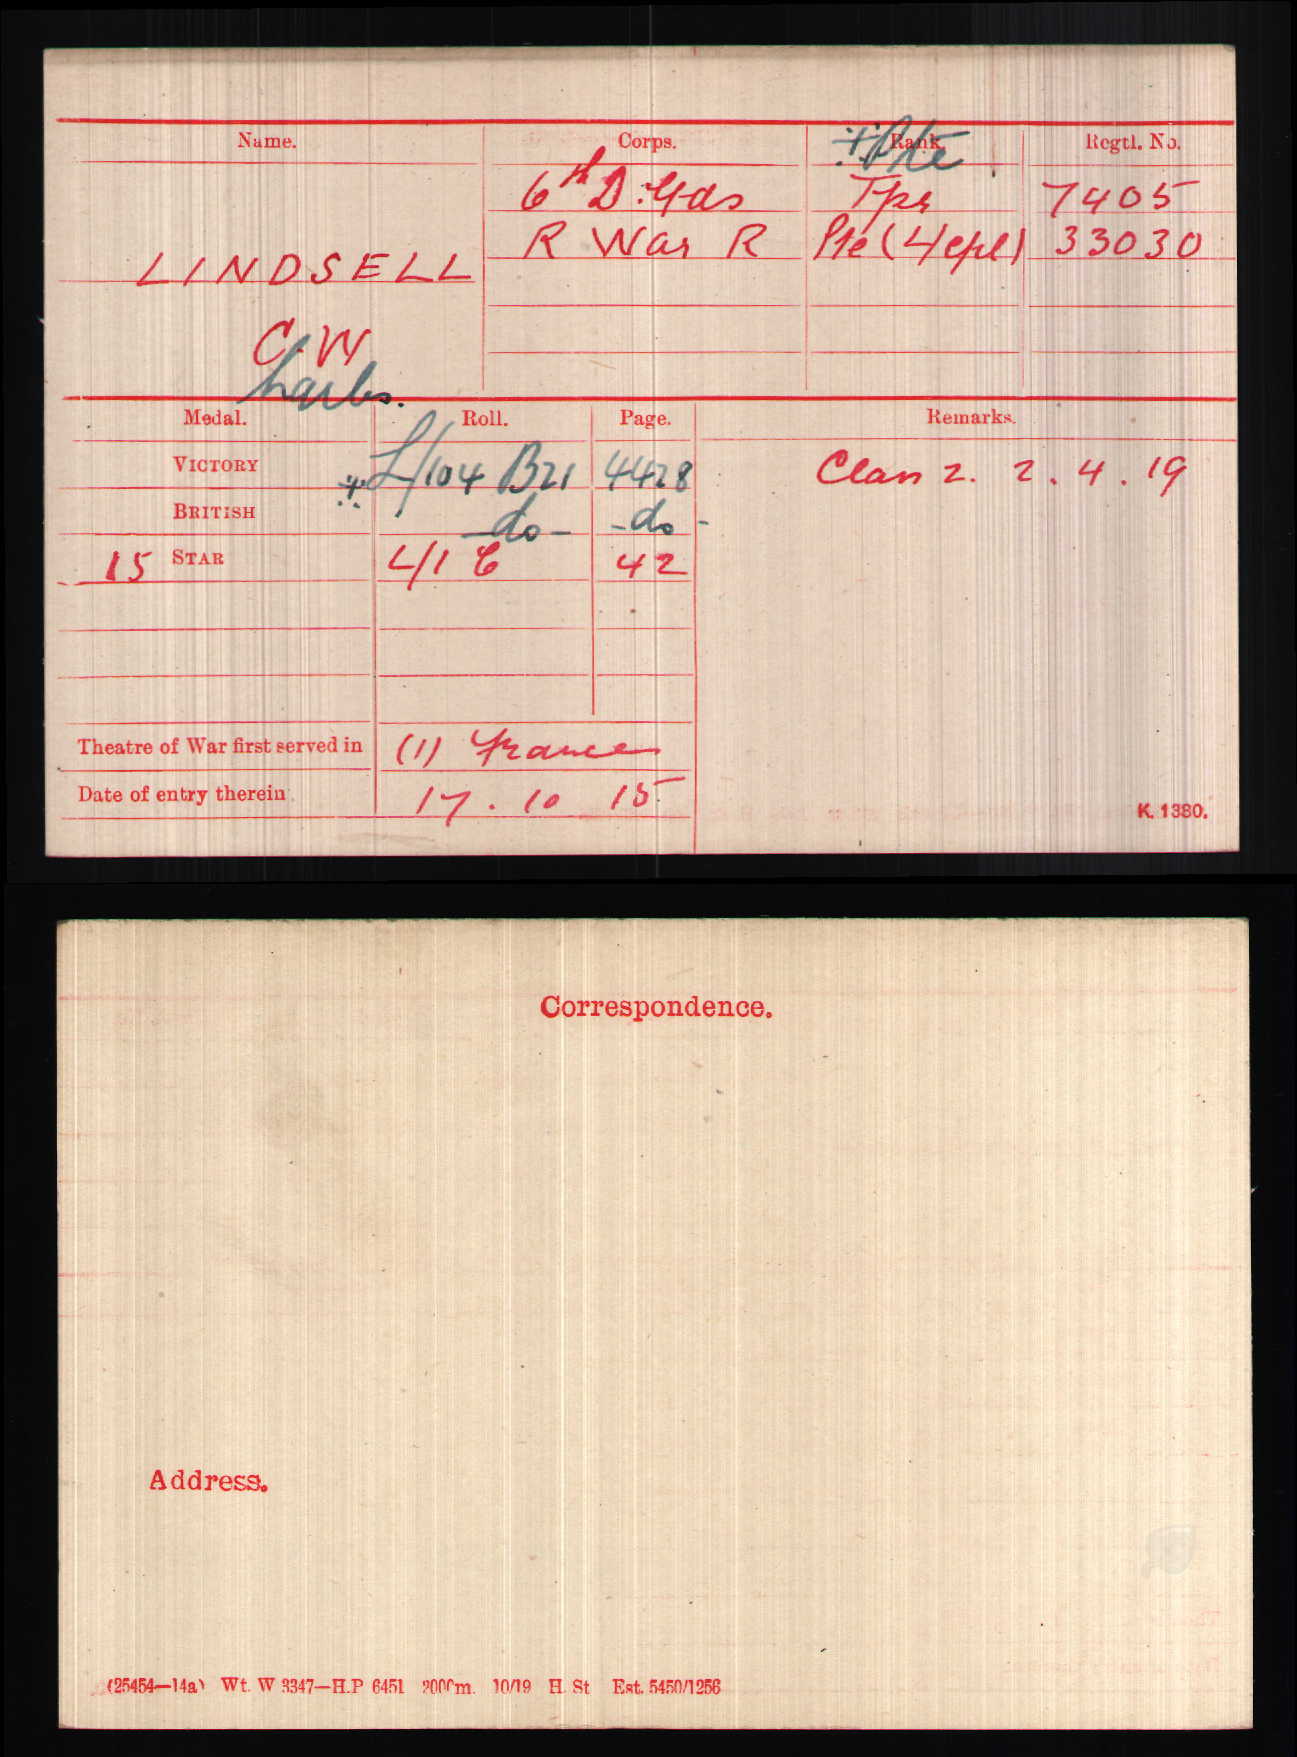 Name. Corps. Rank. Regtl. No.
* Pte
6th D. Gds Tpr 7405
R War R Pte (L/cpl) 33030
LINDSELL
C. W
harles.
Medal. Roll. Page. Remarks.
VICTORY * L/104 B21 4428 Class Z. 2. 4. 19
BRITISH -do- -do-
15 STAR L/1 C 42
Theatre of War first served in (1) France
Date of entry therein. 17. 10 15
K. 1380.
Correspondence.
Address.
(25454—14a) Wt. W 3347—H.P 6451 2000m. 10/19 H. St Est. 5450/1256